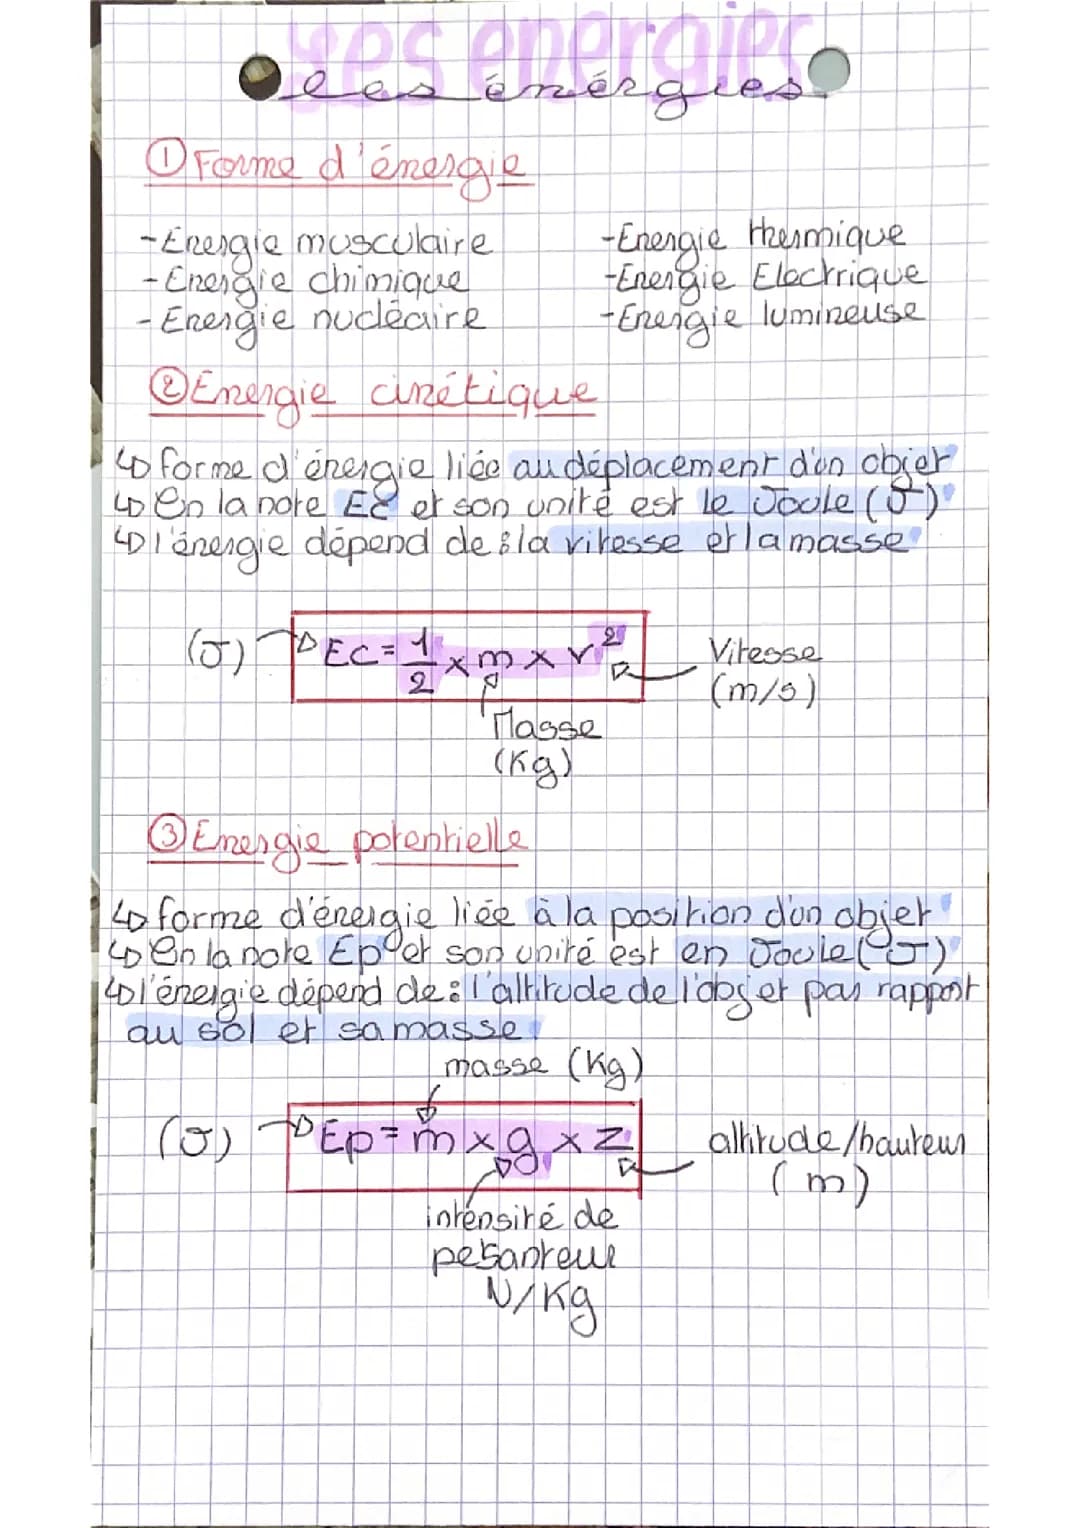 Les énergies
les énérgies
① Forme d'énergie
- Energie musculaire
- Energie chimique
- Energie nucléaire
- Energie thermique
- Energie Electrique
- Energie lumineuse
② Energie cinétique
↳ forme d'énergie liée au déplacement d'un objet
↳ en la note Ec et son unité est le Joule (J)
↳ l'énergie dépend de : la vitesse et la masse
(J)
Ec = 1/2 × m × v²
Vitesse
(m/s)
Masse
(Kg)
③ Energie potentielle
↳ forme d'énergie liée à la position d'un objet
↳ en la note Ep et son unité est en Joule (J)
↳ l'énergie dépend de : l'altitude de l'objet par rapport
au sol et sa masse
masse (Kg)
(J)
Ep = m × g × z
altitude/hauteur
(m)
intensité de
pesanteur
N/Kg